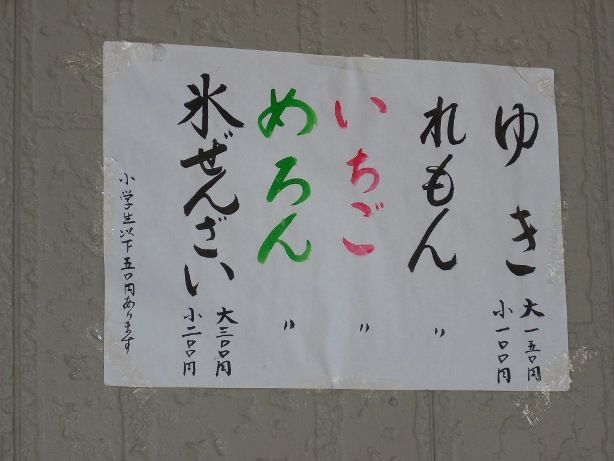 ゆき
大一五〇円
小一〇〇円
れもん 〃
いちご 〃
めろん 〃
氷ぜんざい
大三〇〇円
小二〇〇円
小学生以下五〇円あります